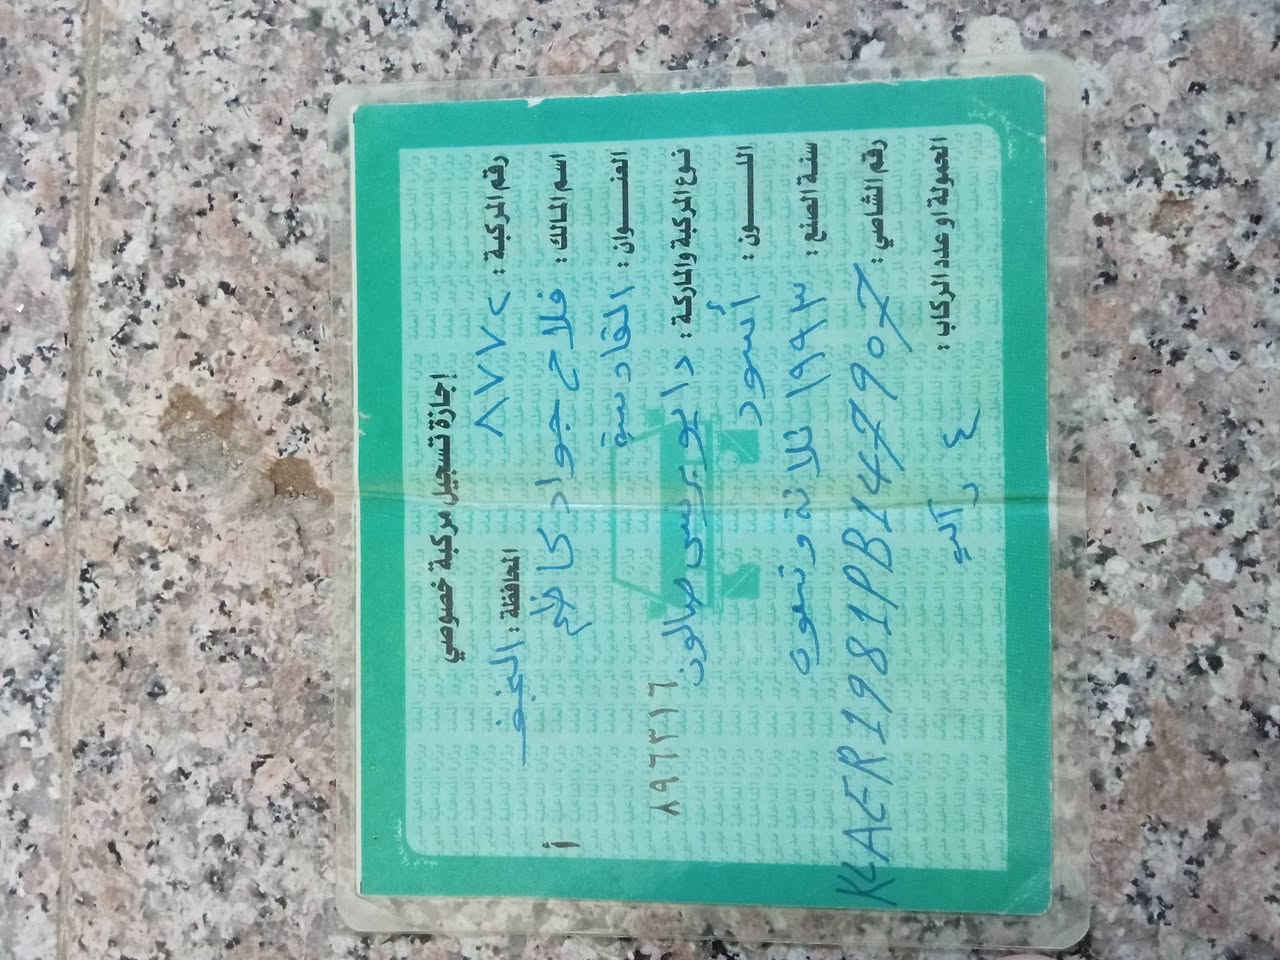 إجازة تسجيل مركبة خصوصي
رقم المركبة : ٨٧٧٢ المحافظة : النجف
اسم المالك : فلاح جواد كاظم
أ
العنـــوان : القادسية
نوع المركبة والماركة : دايو برنس صالون
٨٩٦٣١٦
اللـــــون : أسود
سنة الصنع : ١٩٩٣ ثلاثة وتسعون
رقم الشاصي : KLAER1981PB147907
الحمولة او عدد الركاب : ٤ راكب